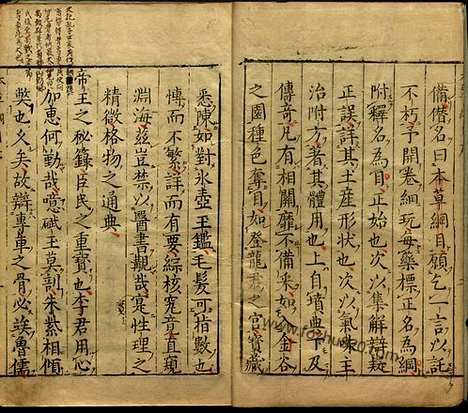 備僭名曰本草綱目願乞一言以託
不朽予開卷細玩每藥標正名爲綱
附釋名爲目正始也次以集解辯疑
正誤詳其土産形狀也次以氣味主
治附方著其體用也上自墳典下及
傳奇凡有相關靡不備采如入金谷
之園種色奪目如登龍君之宮寶藏
悉陳如對氷壺玉鑑毛髮可指數也
博而不繁詳而有要綜核究竟直窺
淵海兹豈禁以醫書覯哉寔性理之
精微格物之通典
帝王之秘籙臣民之重寶也李君用心
加惠何勤哉噫碔玉莫剖朱紫相傾
弊也久矣故辯專車之骨必竢魯儒